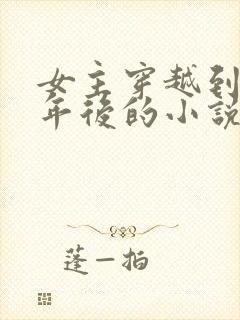 女主穿越到
年後的小說
蓬一拍